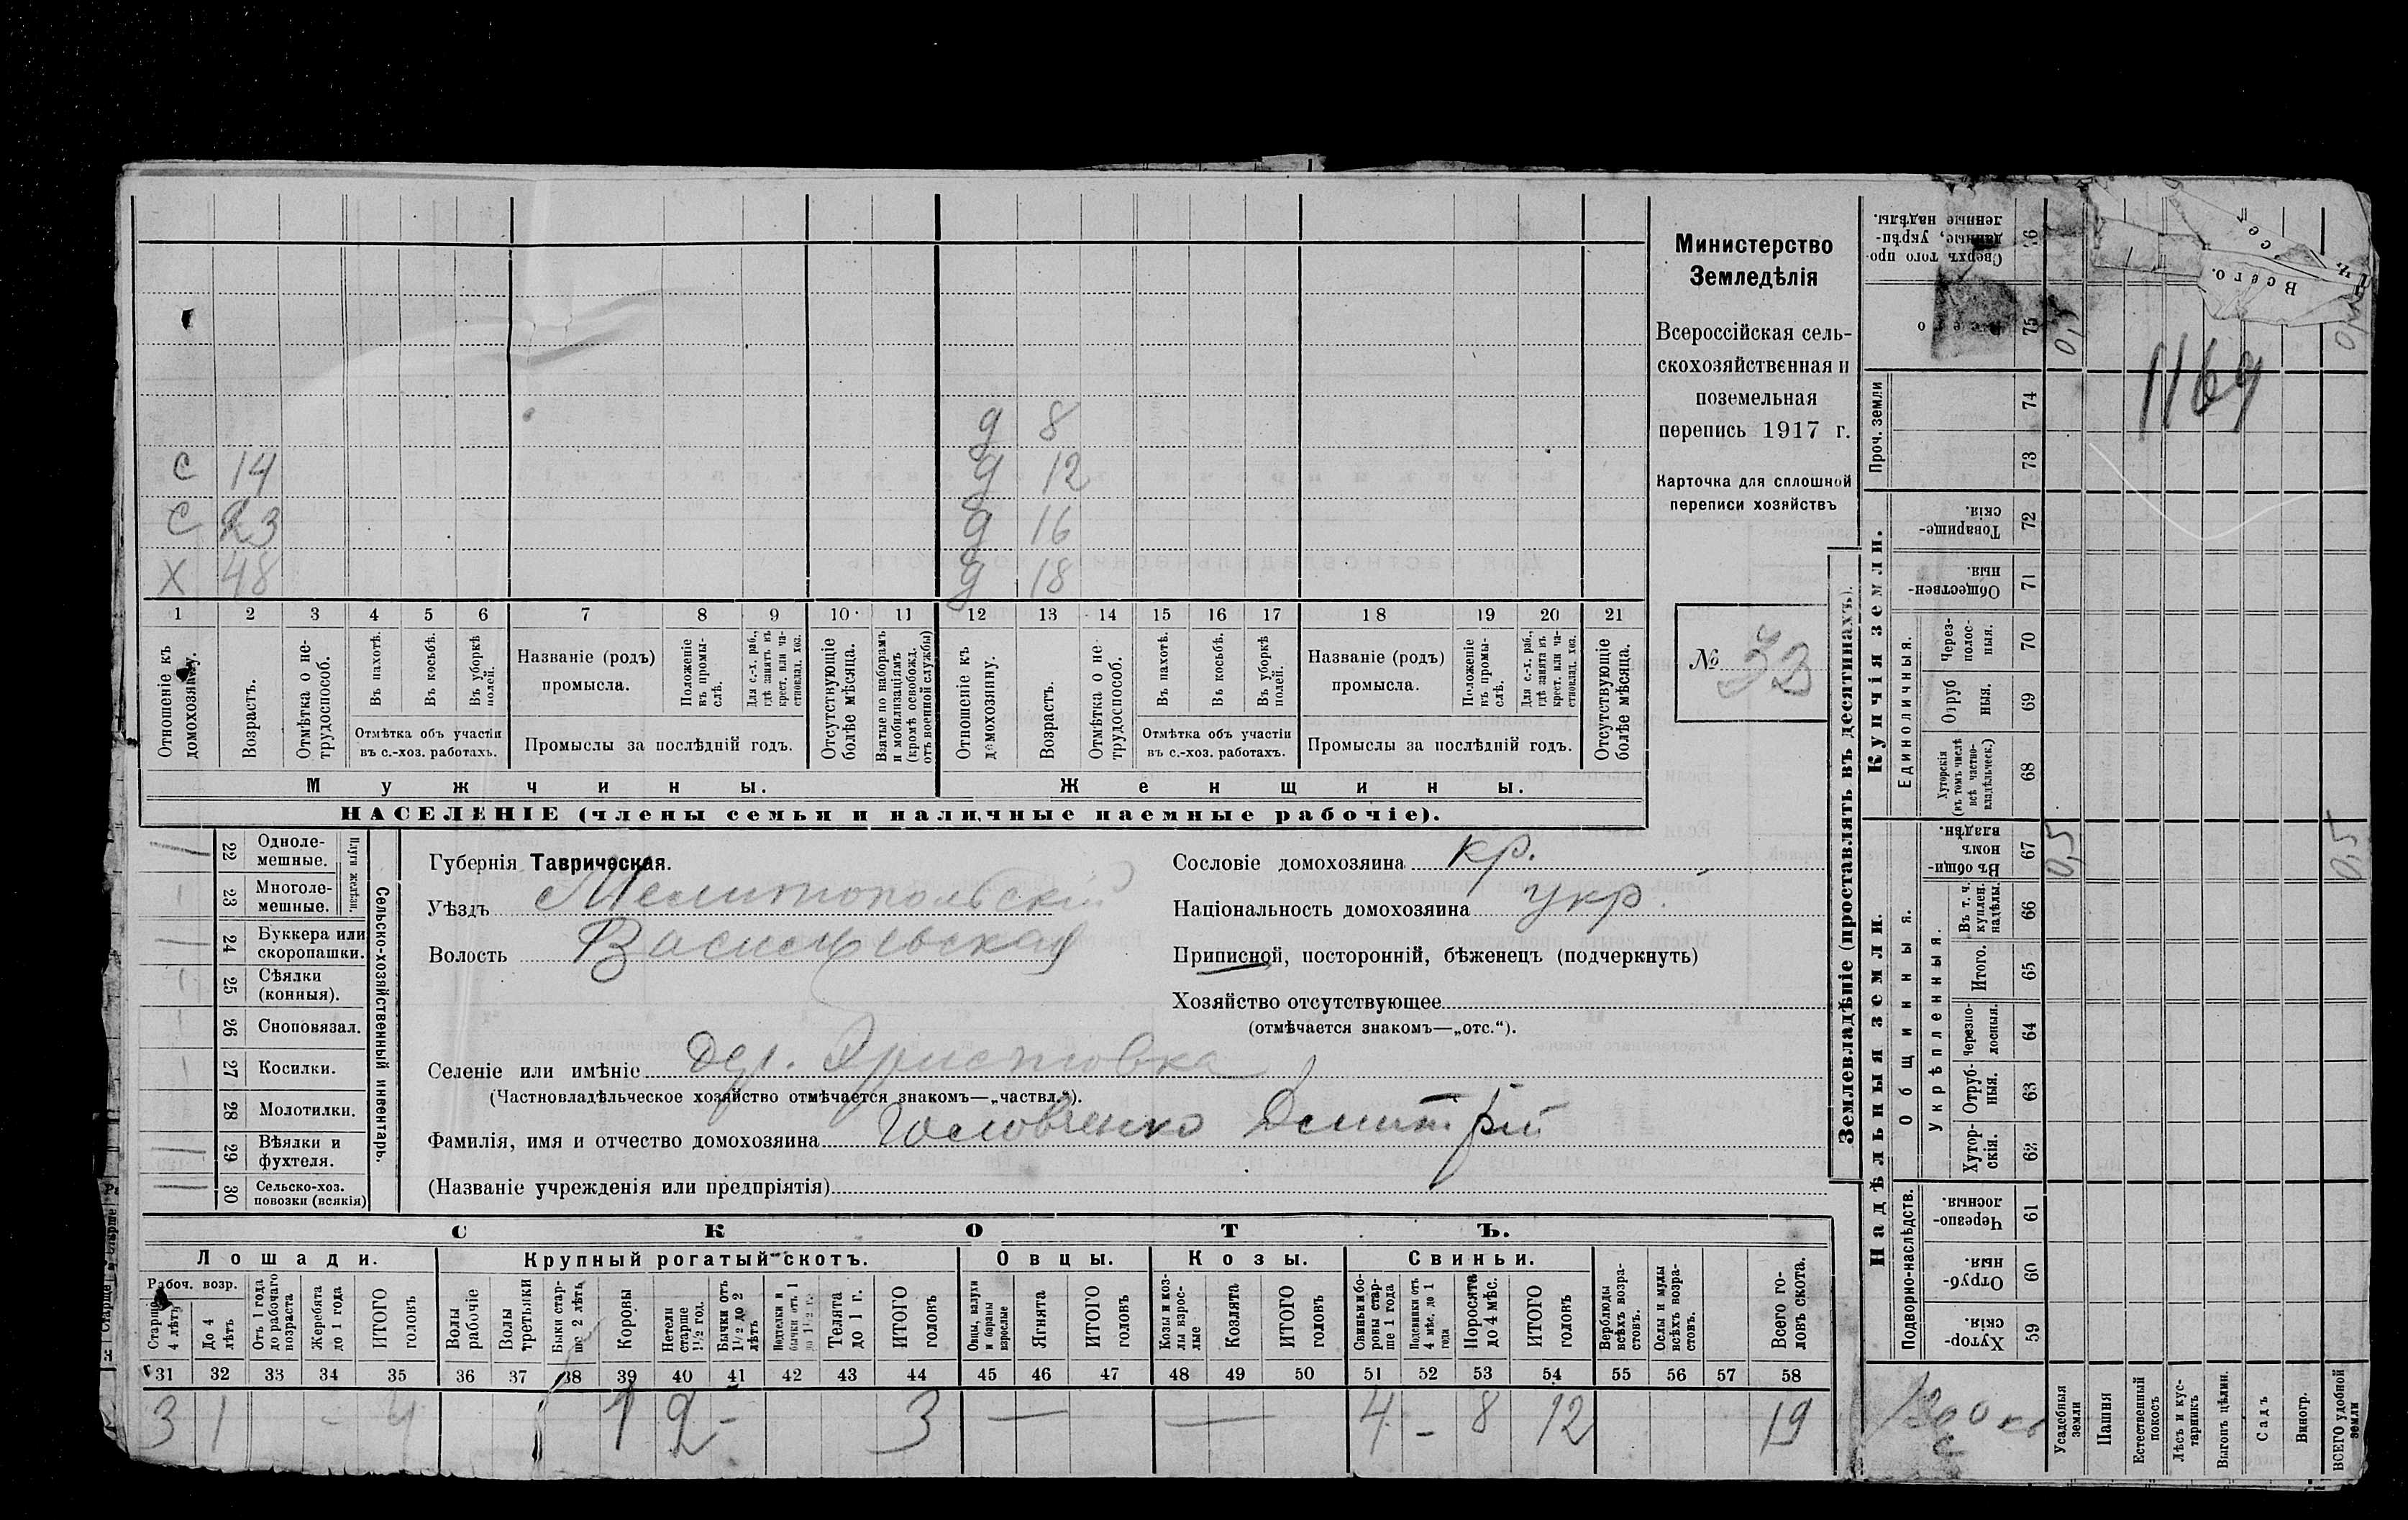 с 14
с 23
х 48
д 8
д 12
д 16
д 18
1 2 3 4 5 6 7 8 9 10 11 12 13 14 15 16 17 18 19 20 21
Отношеніе къ домохозяину.
Возрастъ.
Отмѣтка о нетрудоспособ.
Въ пахотѣ.
Въ косьбѣ.
Въ уборкѣ полей.
Отмѣтка объ участіи
въ с.-хоз. работахъ.
Названіе (родъ)
промысла.
Положеніе въ промыслѣ.
Для с.-х. раб., гдѣ занятъ въ крест. или частновлад. хоз.
Промыслы за послѣдній годъ.
Отсутствующіе болѣе мѣсяца.
Взятые по наборамъ и мобилизаціямъ (кромѣ освобожд. отъ военной службы)
Отношеніе къ домохозяину.
Возрастъ.
Отмѣтка о нетрудоспособ.
Въ пахотѣ.
Въ косьбѣ.
Въ уборкѣ полей.
Отмѣтка объ участіи
въ с.-хоз. работахъ.
Названіе (родъ)
промысла.
Положеніе въ промыслѣ.
Для с.-х. раб., гдѣ занята въ крест. или частновлад. хоз.
Промыслы за послѣдній годъ.
Отсутствующіе болѣе мѣсяца.
Мужчины.
Женщины.
НАСЕЛЕНІЕ (члены семьи и наличные наемные рабочіе).
Министерство
Земледѣлія
Всероссійская сель-
скохозяйственная и
поземельная
перепись 1917 г.
Карточка для сплошной
переписи хозяйствъ
№ 33
22 Одноле-
мешные.
23 Многоле-
мешные.
Плуги желѣзн.
24 Буккера или
скоропашки.
25 Сѣялки
(конныя).
26 Сноповязал.
27 Косилки.
28 Молотилки.
29 Вѣялки и
фухтеля.
30 Сельско-хоз.
повозки (всякія)
Сельско-хозяйственный инвентарь.
Губернія Таврическая.
Уѣздъ Мелитопольскій
Волость Васильевская
Селеніе или имѣніе дер.
(Частновладѣльческое хозяйство отмѣчается знакомъ—„частвл.“).
Фамилія, имя и отчество домохозяина Головченко Дмитрій
(Названіе учрежденія или предпріятія)
Сословіе домохозяина кр.
Національность домохозяина укр.
Приписной, посторонній, бѣженецъ (подчеркнуть)
Хозяйство отсутствующее
(отмѣчается знакомъ—„отс.“).
СКОТЪ.
Лошади.
Крупный рогатый скотъ.
Овцы.
Козы.
Свиньи.
Рабоч. возр.
Старше 4 лѣтъ
До 4 лѣтъ
Отъ 1 года до рабочаго возраста
Жеребята до 1 года
ИТОГО головъ
Волы рабочіе
Волы третьяки
Быки старше 2 лѣтъ
Коровы
Нетели старше 1½ год.
Бычки отъ 1½ до 2 лѣтъ
Подтелки и бычки отъ 1 до 1½ г.
Телята до 1 г.
ИТОГО головъ
Овцы, валухи и бараны взрослые
Ягнята
ИТОГО головъ
Козы и козлы взрослые
Козлята
ИТОГО головъ
Свиньи и боровы старше 1 года
Подсвинки отъ 4 мѣс. до 1 года
Поросята до 4 мѣс.
ИТОГО головъ
Верблюды всѣхъ возрастовъ.
Ослы и мулы всѣхъ возрастовъ.
Всего головъ скота.
31 32 33 34 35 36 37 38 39 40 41 42 43 44 45 46 47 48 49 50 51 52 53 54 55 56 57 58
3 1 - 4 1 2 - 3 — — 4 - 8 12 19
Землевладѣніе (проставлять въ десятинахъ).
Надѣльныя земли.
Купчія земли.
Проч. земли
Подворно-наслѣдств.
Общинныя.
Укрѣпленныя.
Единоличныя.
Сверхъ того проданные, укрѣпленные надѣлы. 76
Всего 75 0,5
74
73
Товарищескія. 72
Общественныя. 71
Черезполосныя. 70
Отрубныя. 69
Хуторскія (въ томъ числѣ всѣ частновладѣльческ.) 68
Въ общиномъ владѣн. 67 0,5 0,5
Въ т. ч. куплен. надѣлы. 66
Итого. 65
Черезполосныя. 64
Отрубныя. 63
Хуторскія. 62
Черезполосныя. 61
Отрубныя. 60
Хуторскія. 59
Усадебныя земли
Пашня
Естественный покосъ
Лѣсъ и кустарникъ
Выгонъ цѣлин.
Садъ
Виногр.
ВСЕГО удобной земли
1169
Всего.